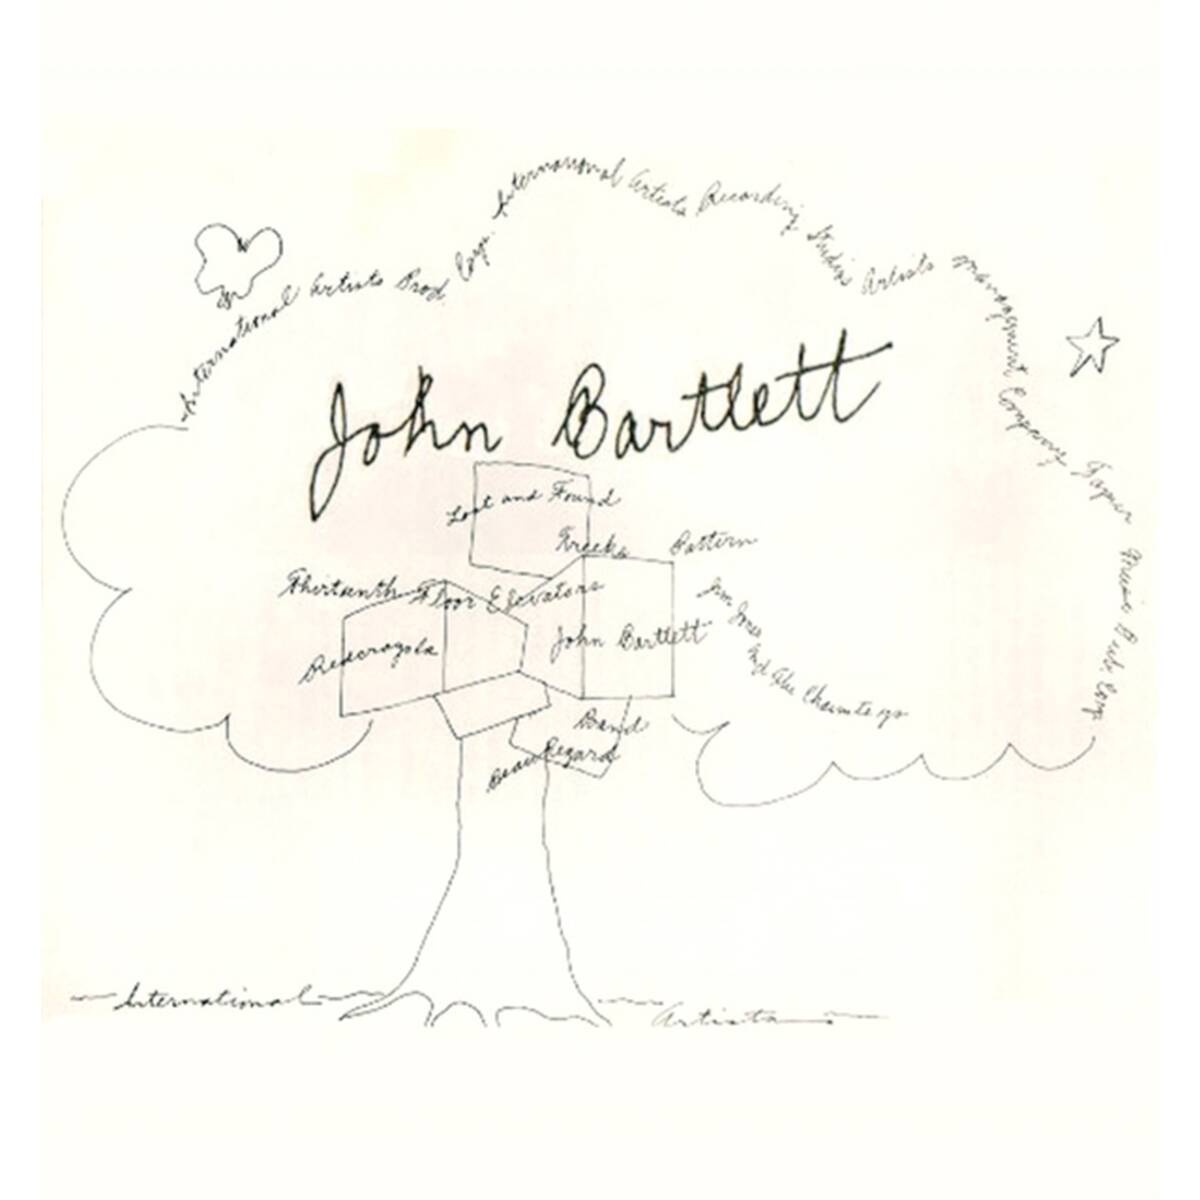 International Artists Prod. Corp. International Artists Recording Studios Artists Management Company Tapier Music Pub. Corp.
John Bartlett
Lost and Found
Kreeks Pattern
Thirteenth Floor Elevators
Jim Jones and the Chaunteys
Redcrayola
John Bartlett
Band
Beauregard
International Artists